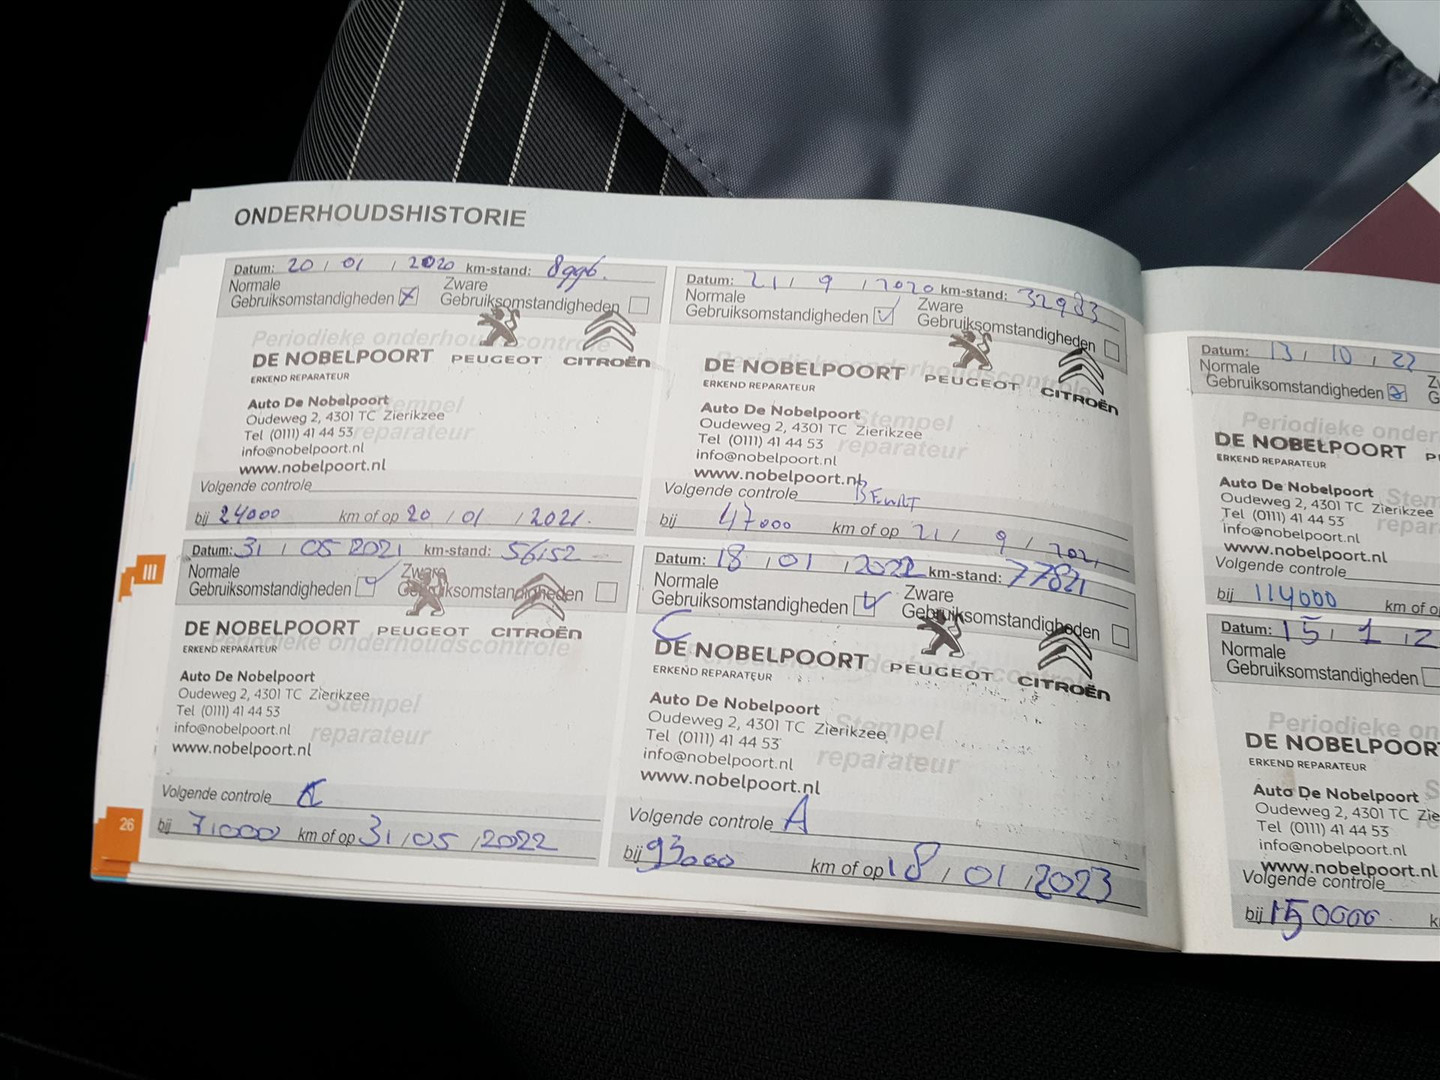 ONDERHOUDSHISTORIE
Datum: 20 / 01 / 2020 km-stand: 8996.
Normale Zware
Gebruiksomstandigheden Gebruiksomstandigheden
Periodieke onderhoudscontrole
DE NOBELPOORT PEUGEOT CITROËN
ERKEND REPARATEUR
Auto De Nobelpoort Stempel
Oudeweg 2, 4301 TC Zierikzee
Tel (0111) 41 44 53 reparateur
info@nobelpoort.nl
www.nobelpoort.nl
Volgende controle
bij 24000 km of op 20 / 01 / 2021.
Datum: 21 / 9 / 2020 km-stand: 32983
Normale Zware
Gebruiksomstandigheden Gebruiksomstandigheden
Periodieke onderhoudscontrole
DE NOBELPOORT PEUGEOT CITROËN
ERKEND REPARATEUR
Auto De Nobelpoort Stempel
Oudeweg 2, 4301 TC Zierikzee
Tel (0111) 41 44 53 reparateur
info@nobelpoort.nl
www.nobelpoort.nl
Volgende controle
bij 47000 km of op 21 / 9 / 2021
Datum: 31 / 05 2021 km-stand: 56152
Normale Zware
Gebruiksomstandigheden Gebruiksomstandigheden
DE NOBELPOORT PEUGEOT CITROËN
ERKEND REPARATEUR Periodieke onderhoudscontrole
Auto De Nobelpoort
Oudeweg 2, 4301 TC Zierikzee
Stempel
Tel (0111) 41 44 53
info@nobelpoort.nl reparateur
www.nobelpoort.nl
Volgende controle
bij 71000 km of op 31 / 05 / 2022
Datum: 18 / 01 / 2022 km-stand: 77821
Normale Zware
Gebruiksomstandigheden Gebruiksomstandigheden
C
DE NOBELPOORT PEUGEOT CITROËN
ERKEND REPARATEUR
Auto De Nobelpoort
Oudeweg 2, 4301 TC Zierikzee Stempel
Tel (0111) 41 44 53
info@nobelpoort.nl reparateur
www.nobelpoort.nl
Volgende controle A
bij 93000 km of op 18 / 01 / 2023
III
26
Datum: 13 / 10 / 22
Normale
Gebruiksomstandigheden
Periodieke onder
DE NOBELPOORT
ERKEND REPARATEUR
Auto De Nobelpoort Stem
Oudeweg 2, 4301 TC Zierikzee
Tel (0111) 41 44 53 repar
info@nobelpoort.nl
www.nobelpoort.nl
Volgende controle
bij 114000 km of o
Datum: 15 / 1 / 2
Normale
Gebruiksomstandigheden
Periodieke on
DE NOBELPOOR
ERKEND REPARATEUR
Auto De Nobelpoort
Oudeweg 2, 4301 TC Zie
Tel (0111) 41 44 53
info@nobelpoort.nl
www.nobelpoort.nl
Volgende controle
bij 150000 k